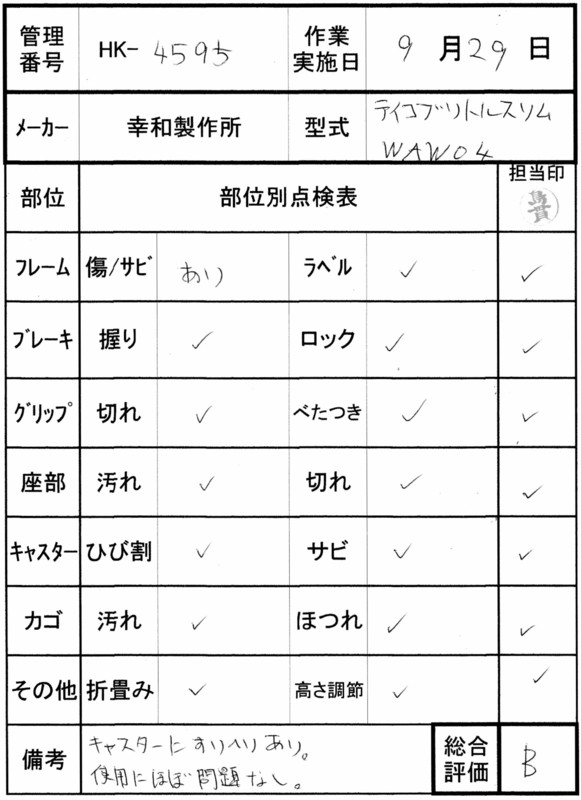 管理番号 HK- 4595 作業実施日 9月29日
メーカー 幸和製作所 型式 テイコブリトルスリム WAW04
部位 部位別点検表 担当印
フレーム 傷/サビ あり ラベル ✓ ✓
ブレーキ 握り ✓ ロック ✓ ✓
グリップ 切れ ✓ べたつき ✓ ✓
座部 汚れ ✓ 切れ ✓ ✓
キャスター ひび割 ✓ サビ ✓ ✓
カゴ 汚れ ✓ ほつれ ✓ ✓
その他 折畳み ✓ 高さ調節 ✓ ✓
備考 キャスターにすりヘリあり。
使用にほぼ問題なし。
総合評価 B